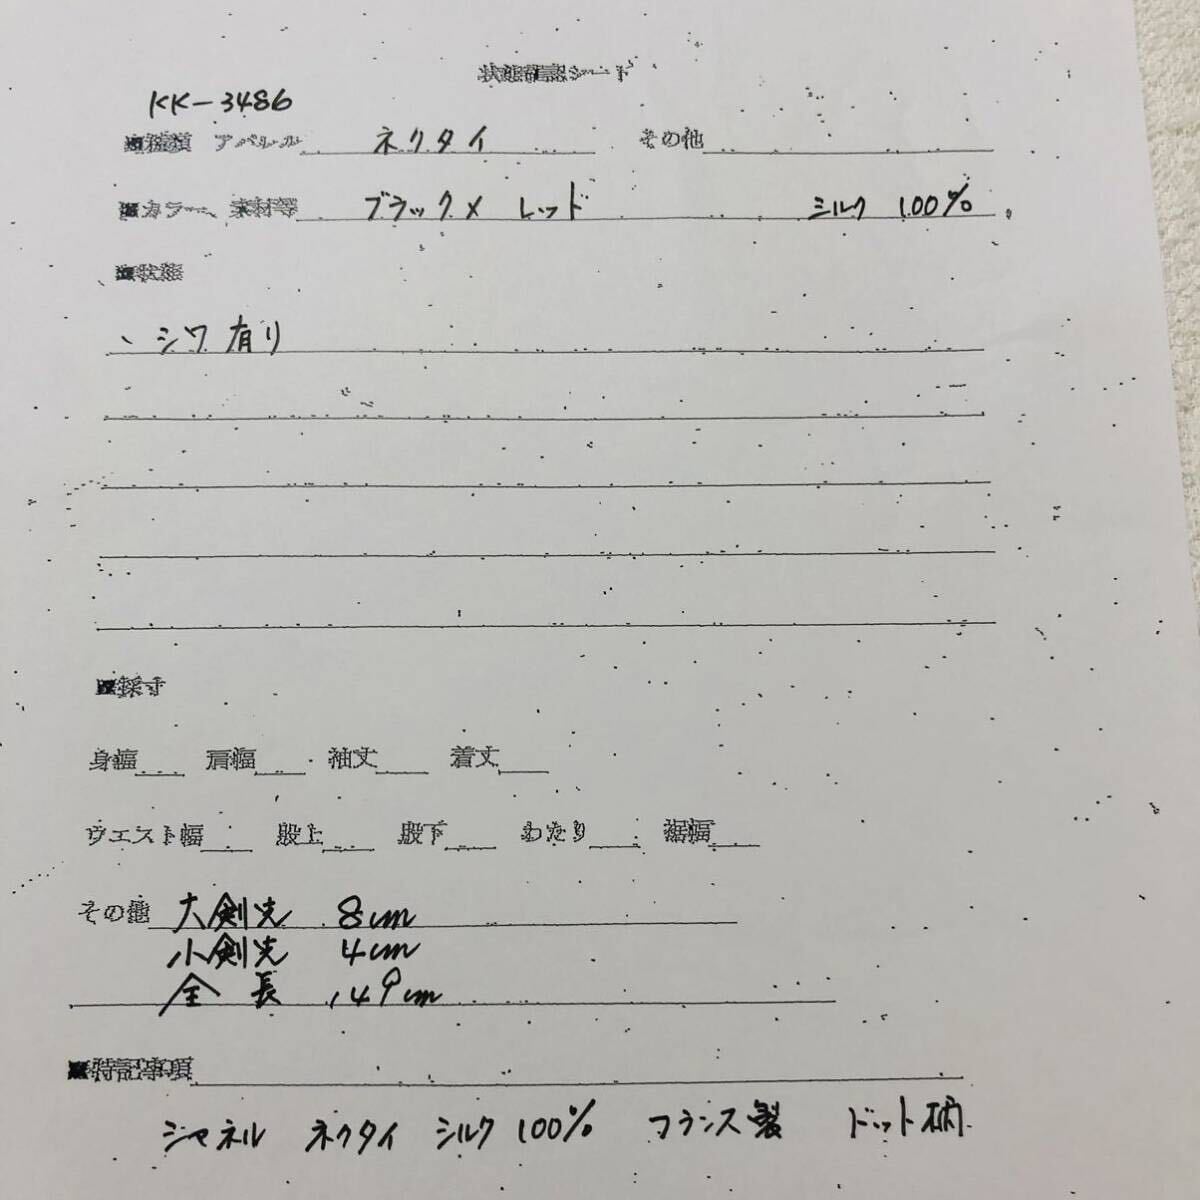 状態確認シート
KK-3486
■種類 アパレル ネクタイ その他
■カラー、素材等 ブラック×レッド シルク 100%
■状態
、シワ有り
■採寸
身幅 肩幅 袖丈 着丈
ウエスト幅 股上 股下 わたり 裾幅
その他 大剣先 8cm
小剣先 4cm
全長 149cm
■特記事項
シャネル ネクタイ シルク100% フランス製 ドット柄